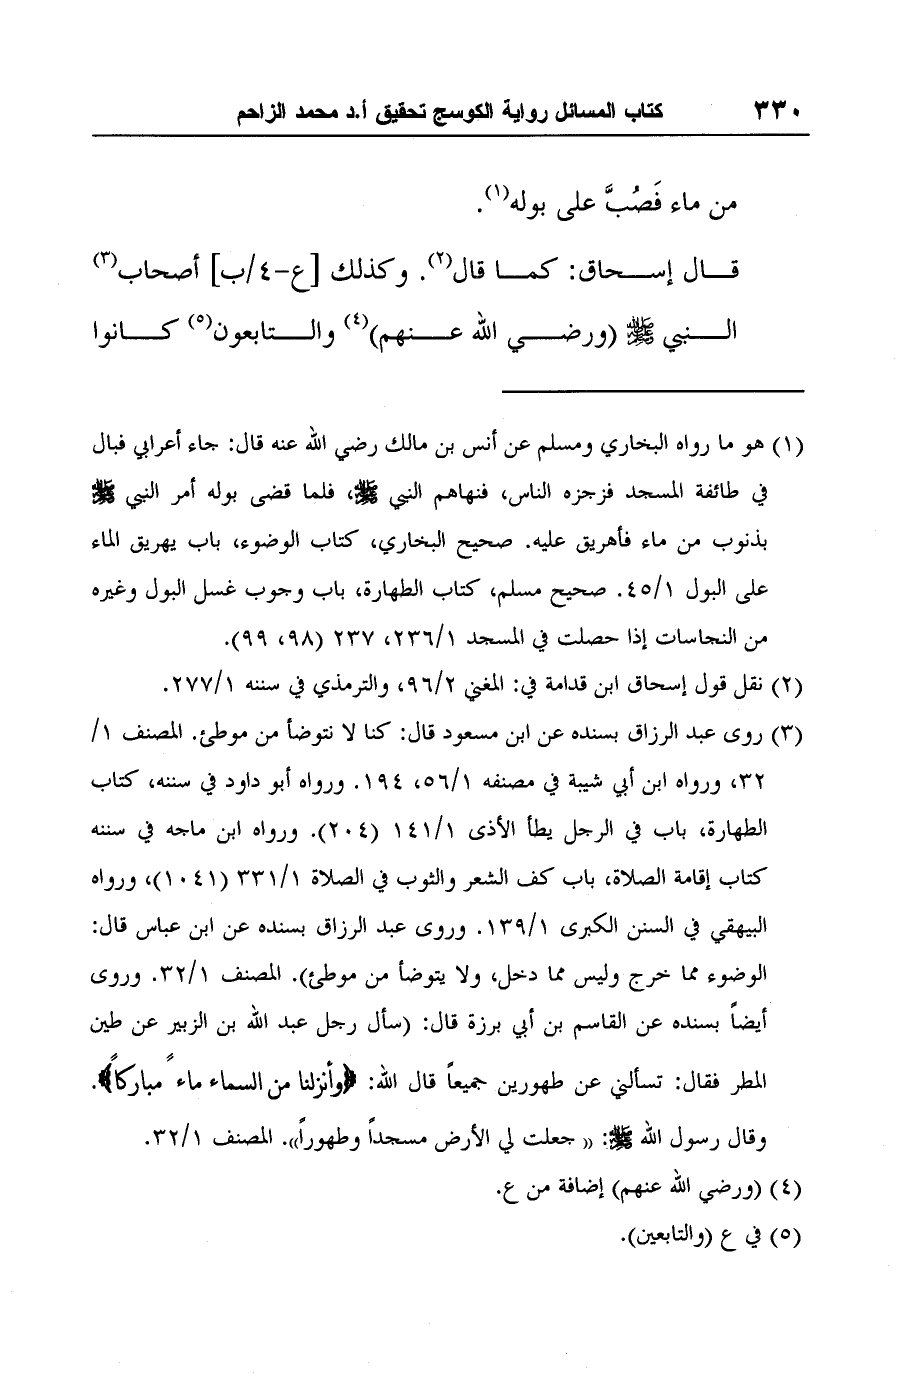 ٣٣٠ كتاب المسائل رواية الكوسج تحقيق أ.د محمد الزاحم
من ماء فَصُبَّ على بوله(١).
قال إسحاق: كما قال(٢). وكذلك [ع-٤/ب] أصحاب(٣)
النبي ﷺ (ورضي الله عنهم)(٤) والتابعون(٥) كانوا
(١) هو ما رواه البخاري ومسلم عن أنس بن مالك رضي الله عنه قال: جاء أعرابي فبال
في طائفة المسجد فزجزه الناس، فنهاهم النبي ﷺ، فلما قضى بوله أمر النبي ﷺ
بذنوب من ماء فأهريق عليه. صحيح البخاري، كتاب الوضوء، باب يهريق الماء
على البول ٤٥/١. صحيح مسلم، كتاب الطهارة، باب وجوب غسل البول وغيره
من النجاسات إذا حصلت في المسجد ٢٣٦/١، ٢٣٧ (٩٨، ٩٩).
(٢) نقل قول إسحاق ابن قدامة في: المغني ٩٦/٢، والترمذي في سننه ٢٧٧/١.
(٣) روى عبد الرزاق بسنده عن ابن مسعود قال: كنا لا نتوضأ من موطئ. المصنف ١/
٣٢، ورواه ابن أبي شيبة في مصنفه ٥٦/١، ١٩٤. ورواه أبو داود في سننه، كتاب
الطهارة، باب في الرجل يطأ الأذى ١٤١/١ (٢٠٤). ورواه ابن ماجه في سننه
كتاب إقامة الصلاة، باب كف الشعر والثوب في الصلاة ٣٣١/١ (١٠٤١)، ورواه
البيهقي في السنن الكبرى ١٣٩/١. وروى عبد الرزاق بسنده عن ابن عباس قال:
الوضوء مما خرج وليس مما دخل، ولا يتوضأ من موطئ). المصنف ٣٢/١. وروى
أيضاً بسنده عن القاسم بن أبي برزة قال: (سأل رجل عبد الله بن الزبير عن طين
المطر فقال: تسألني عن طهورين جميعاً قال الله: ﴿وأنزلنا من السماء ماءً مباركاً﴾.
وقال رسول الله ﷺ: «جعلت لي الأرض مسجداً وطهوراً». المصنف ٣٢/١.
(٤) (ورضي الله عنهم) إضافة من ع.
(٥) في ع (والتابعين).